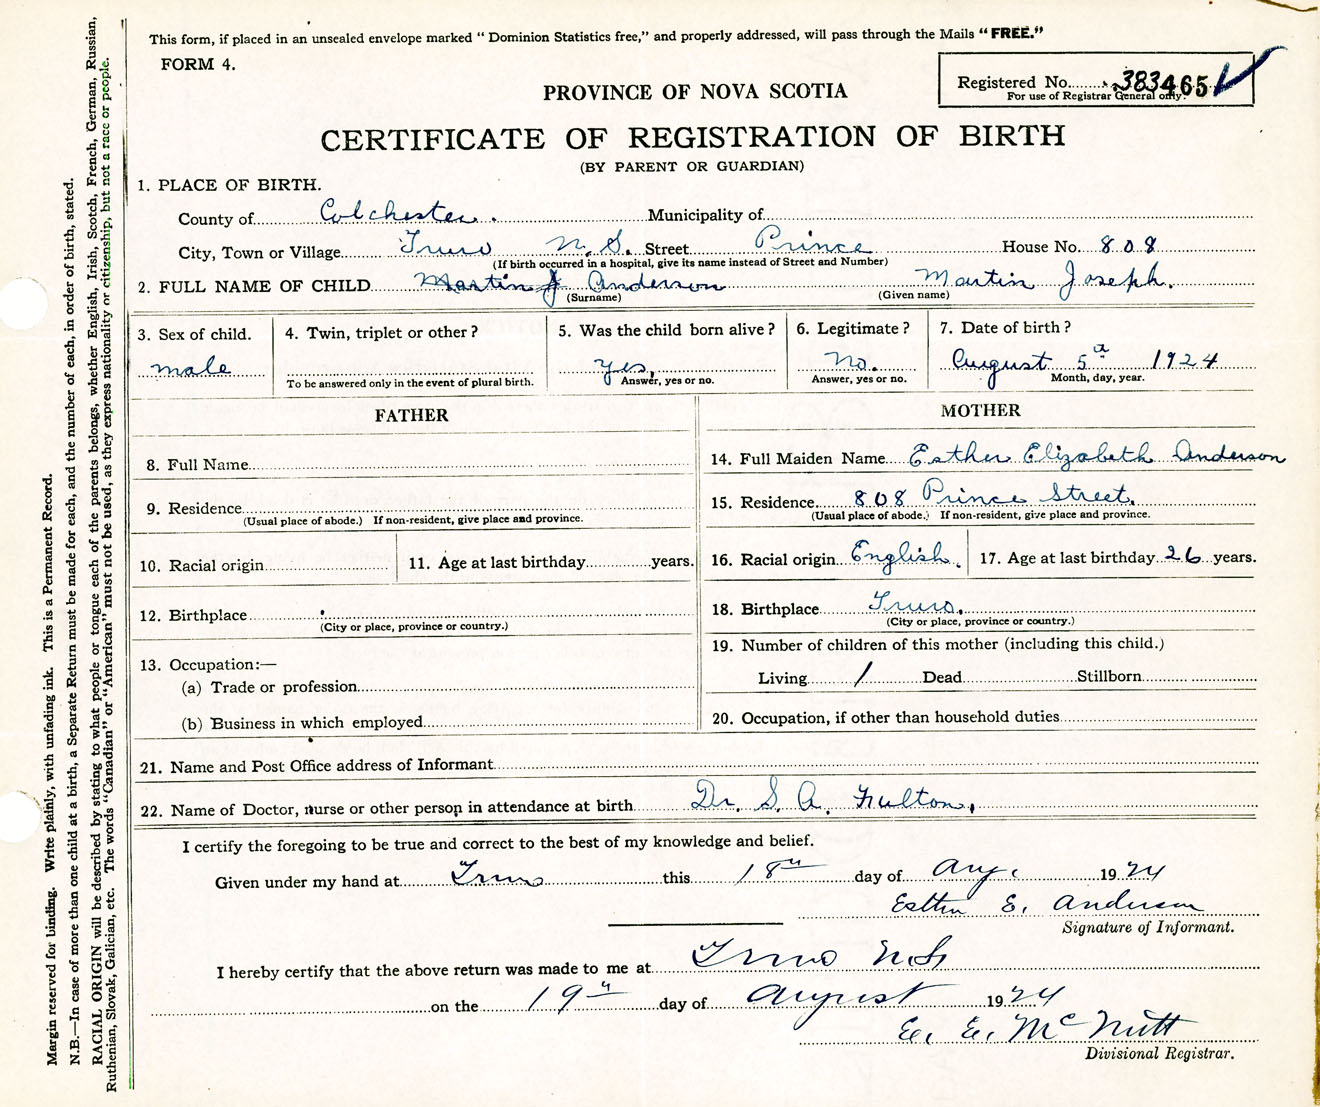 This form, if placed in an unsealed envelope marked "Dominion Statistics free," and properly addressed, will pass through the Mails "FREE."
FORM 4.
Registered No. 383465
For use of Registrar General only.
PROVINCE OF NOVA SCOTIA
CERTIFICATE OF REGISTRATION OF BIRTH
(BY PARENT OR GUARDIAN)
1. PLACE OF BIRTH.
County of Colchester. Municipality of
City, Town or Village Truro N. S. Street Prince House No. 808
(If birth occurred in a hospital, give its name instead of Street and Number)
2. FULL NAME OF CHILD Martin J Anderson Martin Joseph.
(Surname) (Given name)
3. Sex of child. 4. Twin, triplet or other? 5. Was the child born alive? 6. Legitimate? 7. Date of birth?
male yes, No. August 5th 1924
To be answered only in the event of plural birth. Answer, yes or no. Answer, yes or no. Month, day, year.
FATHER
8. Full Name
9. Residence
(Usual place of abode.) If non-resident, give place and province.
10. Racial origin 11. Age at last birthday years.
12. Birthplace
(City or place, province or country.)
13. Occupation:—
(a) Trade or profession
(b) Business in which employed
MOTHER
14. Full Maiden Name Esther Elizabeth Anderson
15. Residence 808 Prince Street.
(Usual place of abode.) If non-resident, give place and province.
16. Racial origin English. 17. Age at last birthday 26 years.
18. Birthplace Truro.
(City or place, province or country.)
19. Number of children of this mother (including this child.)
Living 1 Dead Stillborn
20. Occupation, if other than household duties
21. Name and Post Office address of Informant
22. Name of Doctor, nurse or other person in attendance at birth Dr. S. A. Fulton.
I certify the foregoing to be true and correct to the best of my knowledge and belief.
Given under my hand at Truro this 18th day of Aug. 1924
Esther E. Anderson
Signature of Informant.
I hereby certify that the above return was made to me at Truro N.S
on the 19th day of August 1924
E. E. McNutt
Divisional Registrar.
Margin reserved for binding. Write plainly, with unfading ink. This is a Permanent Record.
N.B.—In case of more than one child at a birth, a Separate Return must be made for each, and the number of each, in order of birth, stated.
RACIAL ORIGIN will be described by stating to what people or tongue each of the parents belongs, whether English, Irish, Scotch, French, German, Russian,
Ruthenian, Slovak, Galician, etc. The words "Canadian" or "American" must not be used, as they express nationality or citizenship, but not a race or people.